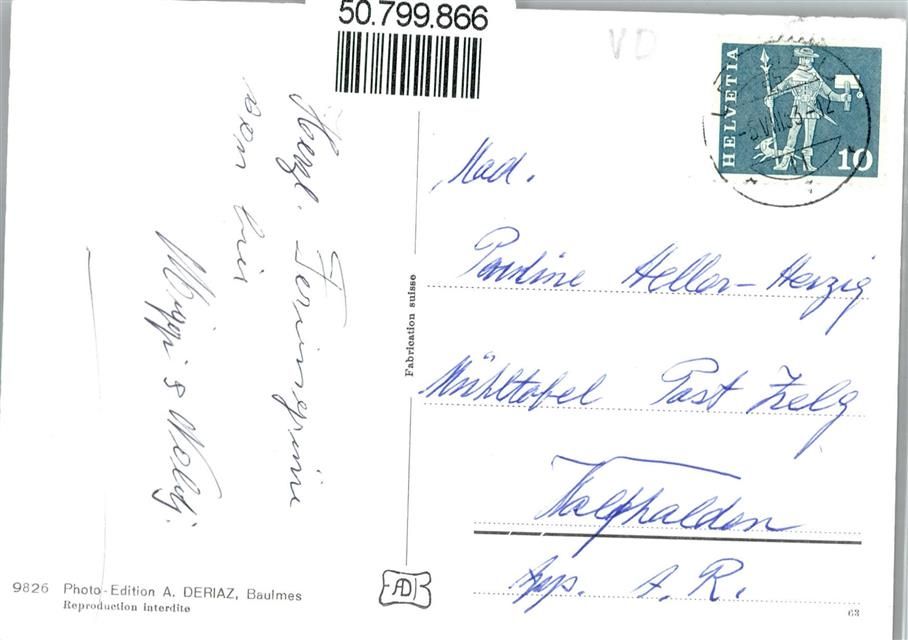 50.799.866
VD
HELVETIA
10
Herzl. Feriengrüsse
von hier
Mad.
Pauline Heller-Herzig
Mühltobel Post Zelg
Wolfhalden
App. A. R.
Fabrication suisse
9826 Photo-Edition A. DERIAZ, Baulmes
Reproduction interdite
AD
63